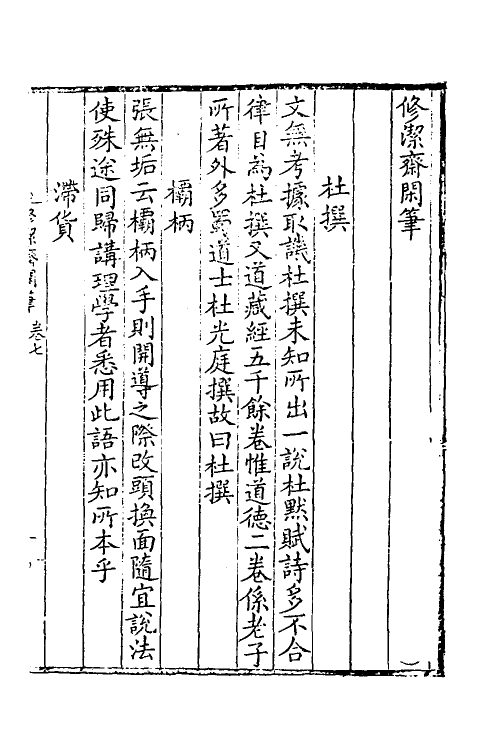 修潔齋閑筆
杜撰
文無考據取譏杜撰未知所出一說杜默賦詩多不合
律目為杜撰又道藏經五千餘卷惟道德二卷係老子
所著外多蜀道士杜光庭撰故曰杜撰
欛柄
張無垢云欛柄入手則開導之際改頭換面隨宜說法
使殊途同歸講理學者悉用此語亦知所本乎
滯貨
修潔齋閑筆 卷七 一